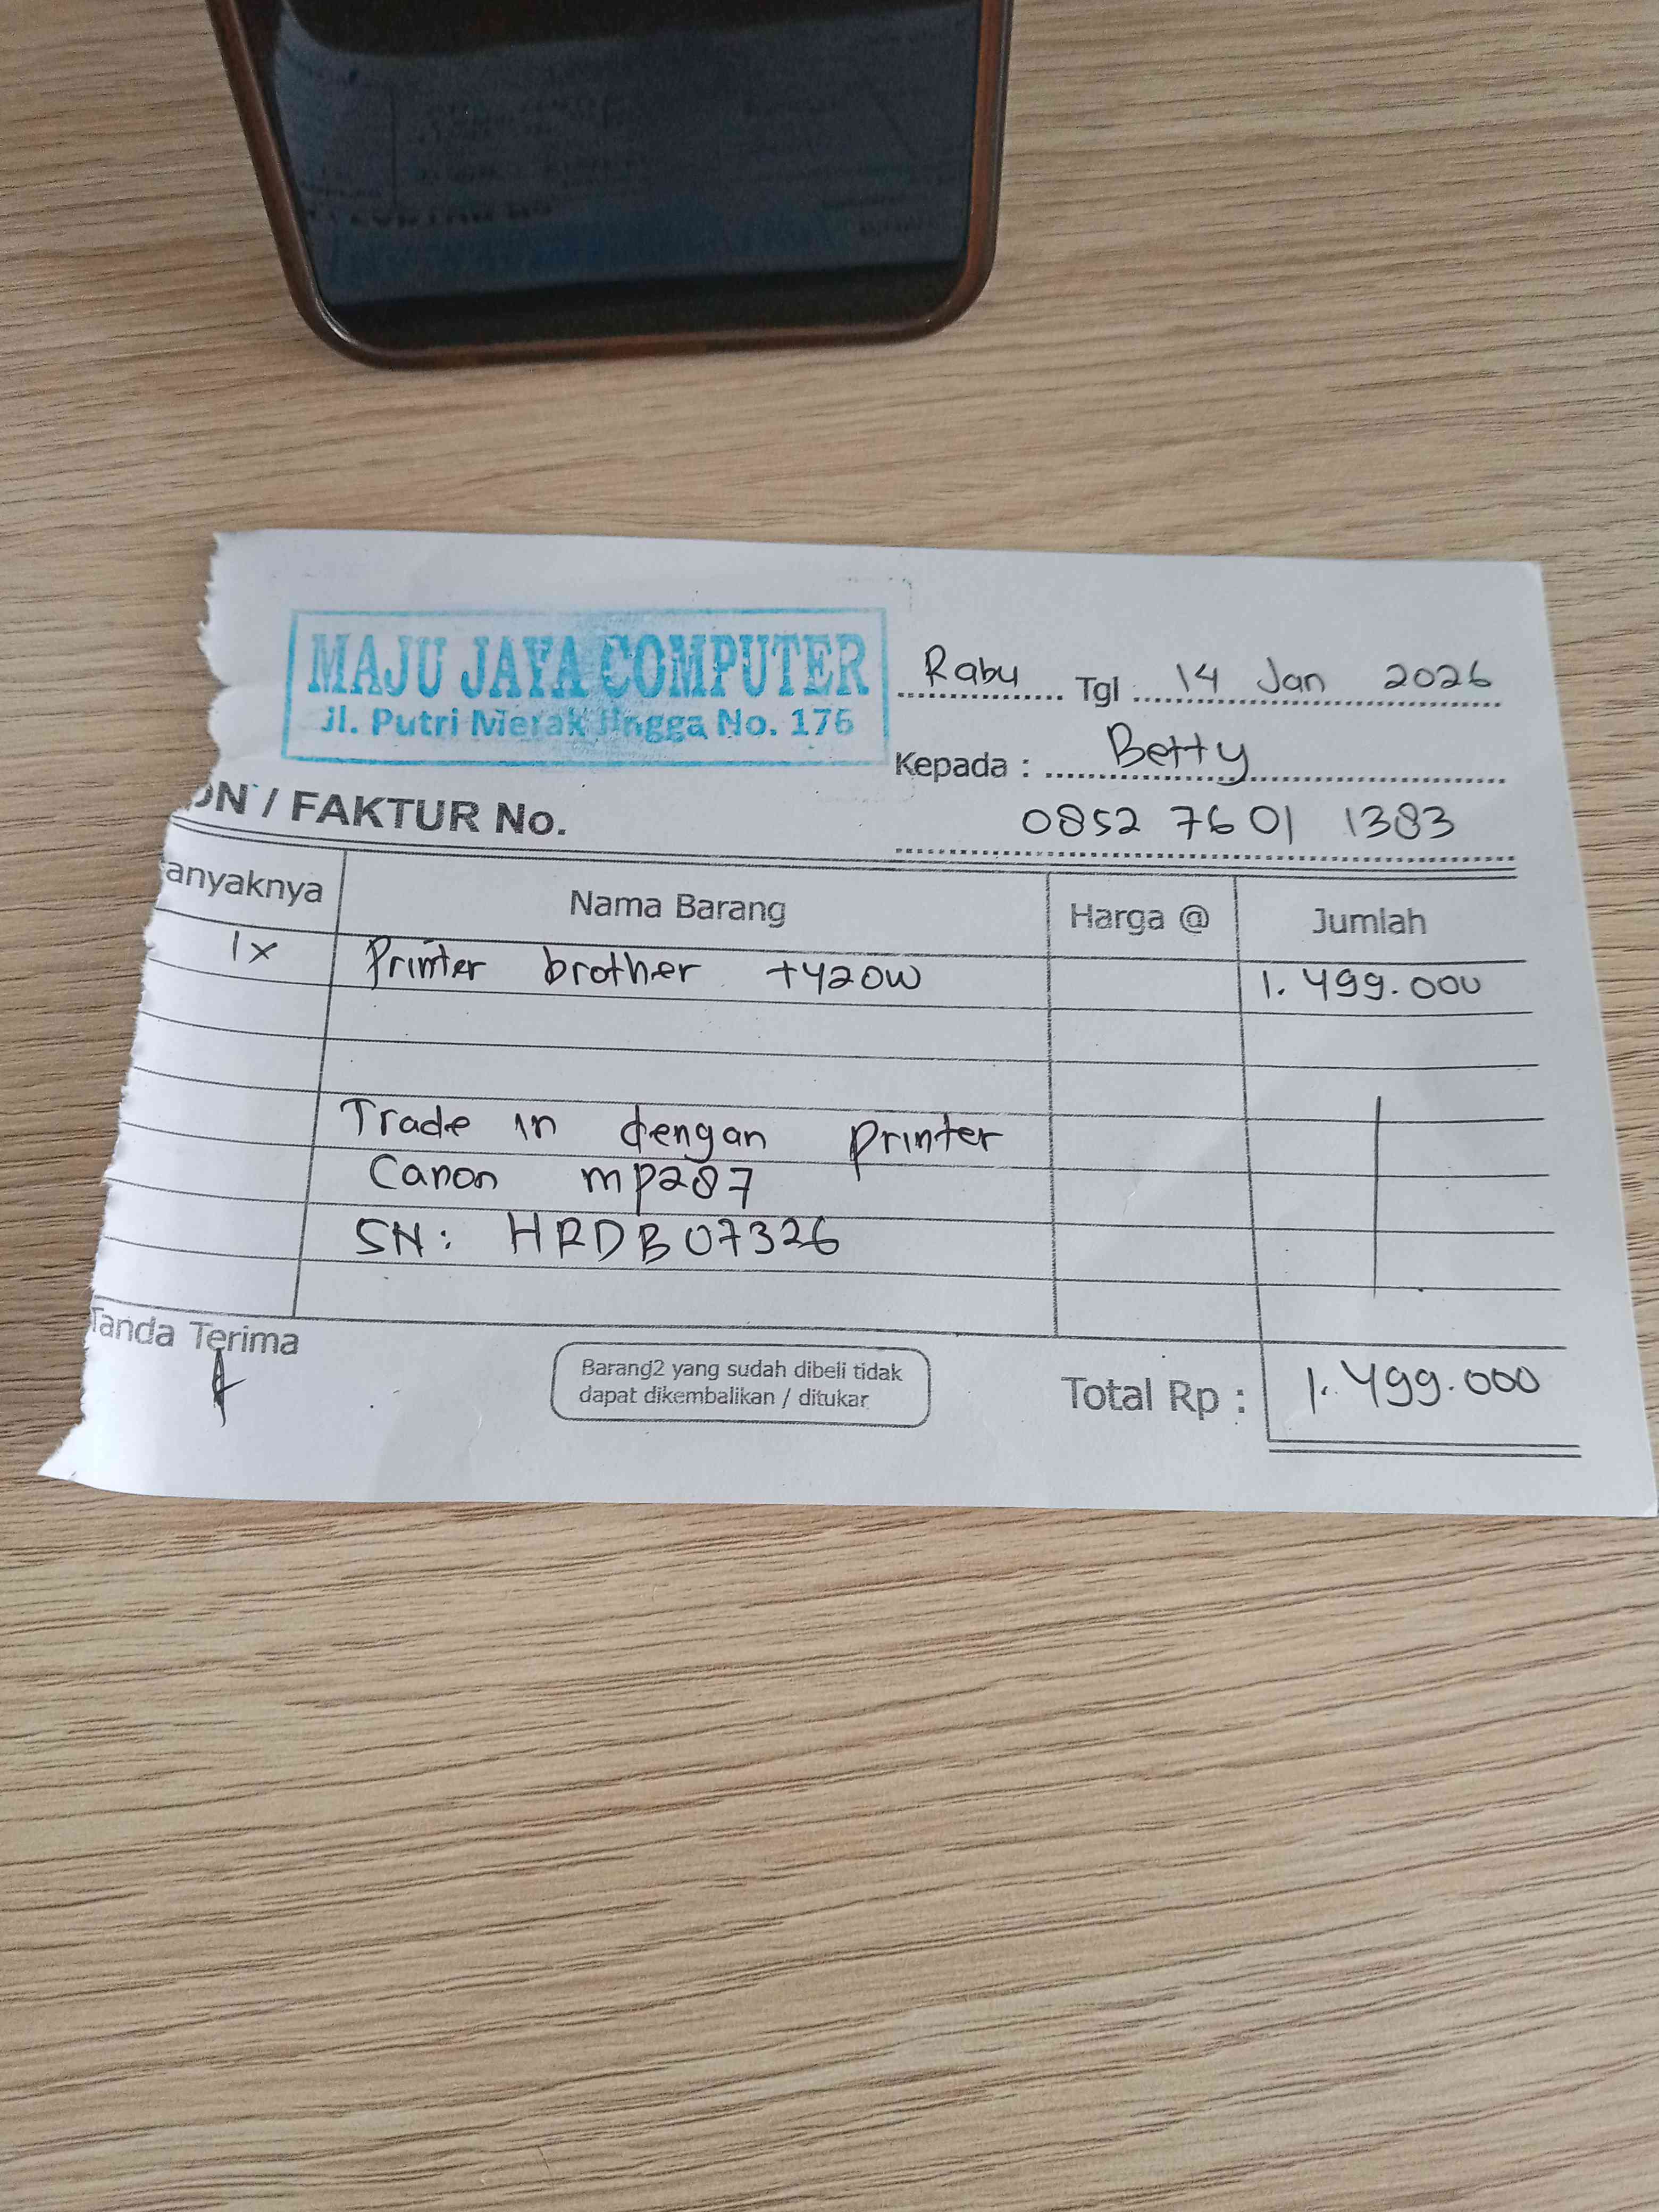 MAJU JAYA COMPUTER
Jl. Putri Merak Jingga No. 176
Rabu Tgl : 14 Jan 2026
Kepada : Betty
0852 7601 1383
ON / FAKTUR No.
anyaknya Nama Barang Harga @ Jumlah
1x Printer brother t420w 1.499.000
Trade in dengan printer
Canon mp287
SN: HRDB07326
Tanda Terima
Barang2 yang sudah dibeli tidak
dapat dikembalikan / ditukar
Total Rp : 1.499.000